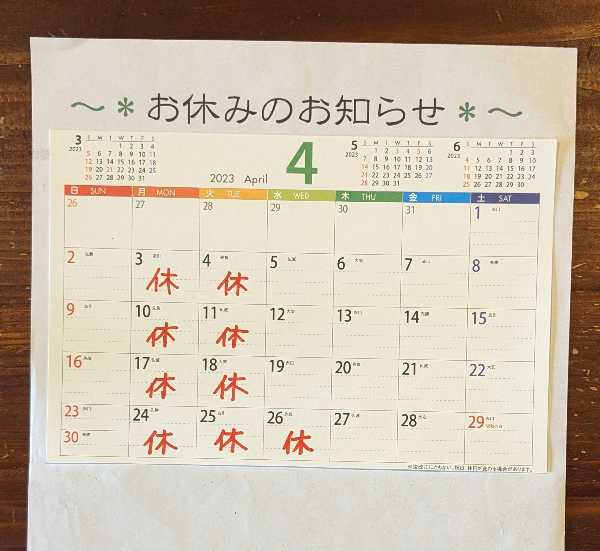 ～＊お休みのお知らせ＊～
3
2023
S M T W T F S
1 2 3 4
5 6 7 8 9 10 11
12 13 14 15 16 17 18
19 20 21 22 23 24 25
26 27 28 29 30 31
2023 April 4
5
2023
S M T W T F S
1 2 3 4 5 6
7 8 9 10 11 12 13
14 15 16 17 18 19 20
21 22 23 24 25 26 27
28 29 30 31
6
2023
S M T W T F S
1 2 3
4 5 6 7 8 9 10
11 12 13 14 15 16 17
18 19 20 21 22 23 24
25 26 27 28 29 30
日 SUN 月 MON 火 TUE 水 WED 木 THU 金 FRI 土 SAT
26 27 28 29 30 31 1
2 3 4 5 6 7 8
休 休
9 10 11 12 13 14 15
休 休
16 17 18 19 20 21 22
休 休
23 24 25 26 27 28 29
30 休 休 休